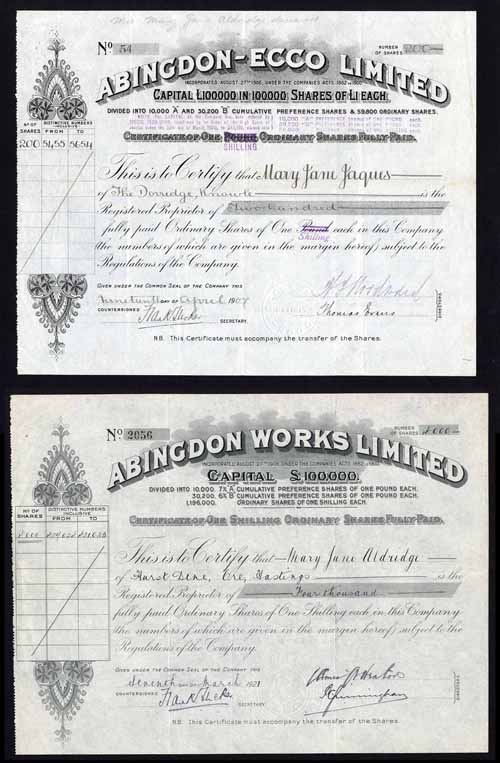 Mrs Mary Jane Aldridge deceased
No 54
NUMBER OF SHARES 200
ABINGDON-ECCO LIMITED
INCORPORATED AUGUST 27TH 1906, UNDER THE COMPANIES ACTS, 1862 TO 1900.
CAPITAL £100000 IN 100000 SHARES OF £1 EACH.
DIVIDED INTO 10,000 "A" AND 30,200 "B" CUMULATIVE PREFERENCE SHARES & 59,800 ORDINARY SHARES.
CERTIFICATE OF ONE POUND ORDINARY SHARES FULLY PAID.
SHILLING
NO OF SHARES
DISTINCTIVE NUMBERS INCLUSIVE
FROM TO
200
This is to Certify that Mary Jane Jaques
of The Dorridge, Knowle is the
Registered Proprietor of Two hundred
fully paid Ordinary Shares of One Pound each in this Company
Shilling
the numbers of which are given in the margin hereof, subject to the
Regulations of the Company.
GIVEN UNDER THE COMMON SEAL OF THE COMPANY THIS
day of April 1907
COUNTERSIGNED
SECRETARY.
Thomas Evans
DIRECTORS
N.B. This Certificate must accompany the transfer of the Shares.
No 2056
NUMBER OF SHARES 4000
ABINGDON WORKS LIMITED
INCORPORATED AUGUST 27TH 1906, UNDER THE COMPANIES ACTS, 1862 TO 1900.
CAPITAL £100,000.
DIVIDED INTO 10,000 7% A CUMULATIVE PREFERENCE SHARES OF ONE POUND EACH.
30,200 6% B CUMULATIVE PREFERENCE SHARES OF ONE POUND EACH.
1,196,000 ORDINARY SHARES OF ONE SHILLING EACH.
CERTIFICATE OF ONE SHILLING ORDINARY SHARES FULLY PAID.
NO OF SHARES
DISTINCTIVE NUMBERS INCLUSIVE
FROM TO
4000
This is to Certify that Mary Jane Aldridge
of Hurst Dene, Ore, Hastings is the
Registered Proprietor of Four thousand
fully paid Ordinary Shares of One Shilling each in this Company
the numbers of which are given in the margin hereof, subject to the
Regulations of the Company.
GIVEN UNDER THE COMMON SEAL OF THE COMPANY THIS
Seventh day of March 1921
COUNTERSIGNED
SECRETARY.
DIRECTORS
N.B. This Certificate must accompany the transfer of the Shares.